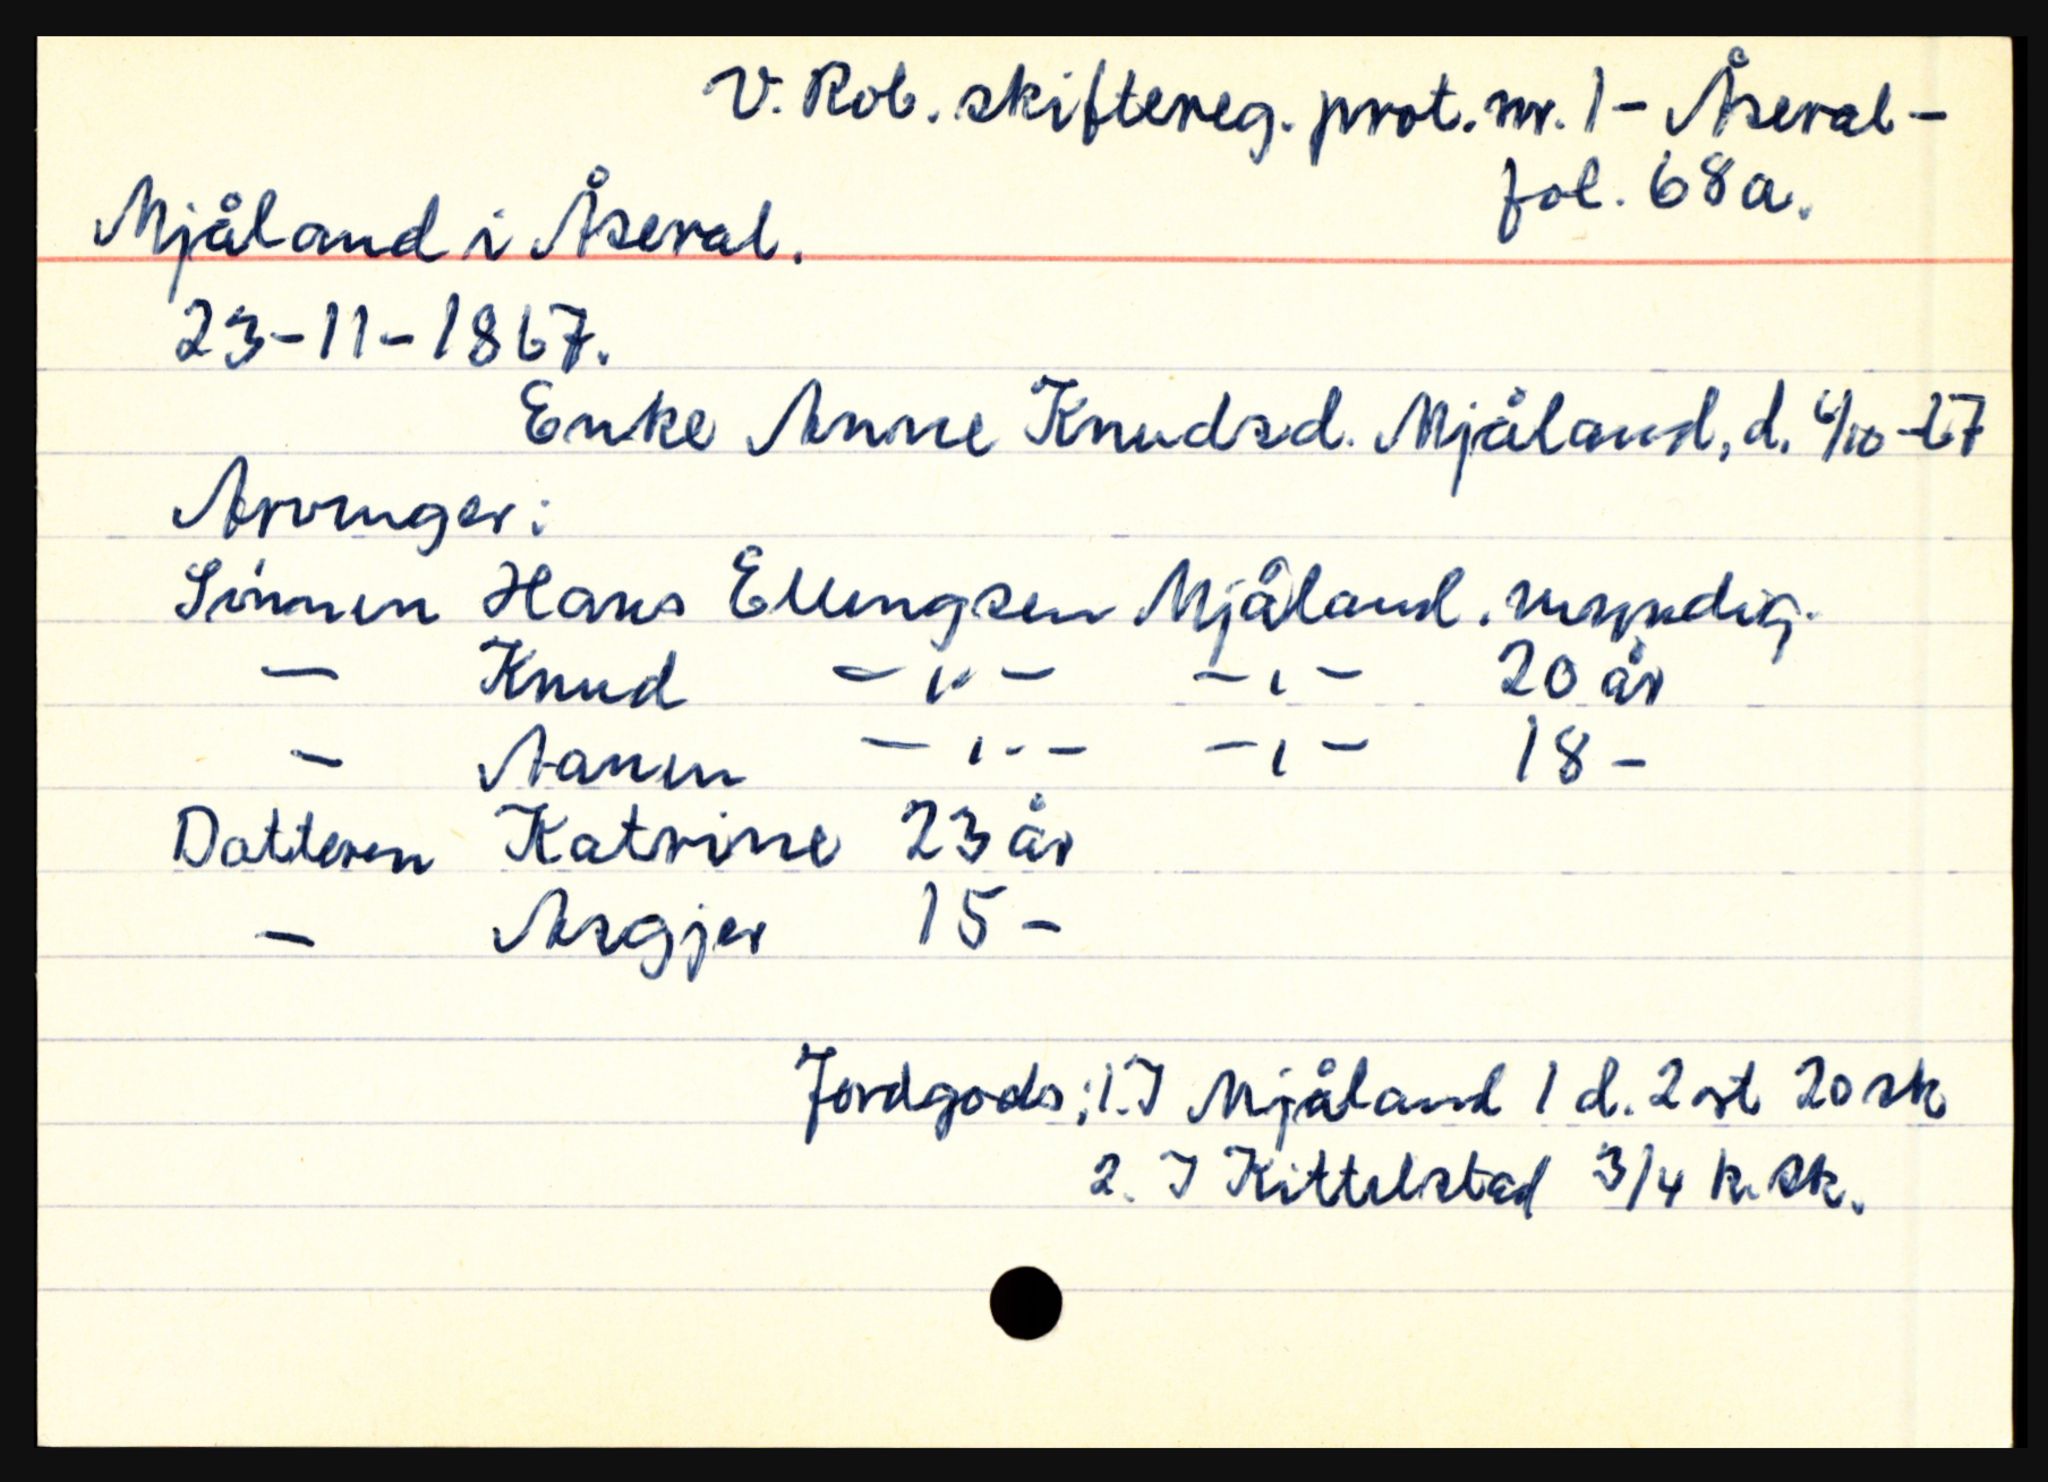 V. Rob. skiftereg. prot. nr. 1 - Åseral -
fol. 68a.
Mjåland i Åseral.
23-11-1867.
Enke Anne Knudsd. Mjåland, d. 4/10-67
Arvinger:
Sönnen Hans Ellingsen Mjåland. myndig.
— Knud —"— —"— 20 år
— Aanen —"— —"— 18 -
Datteren Katrine 23 år
— Asgjer 15 -
Jordgods: 1. I Mjåland 1 d. 2 ort 20 sk
2. I Kittelstad 3/4 k. sk.